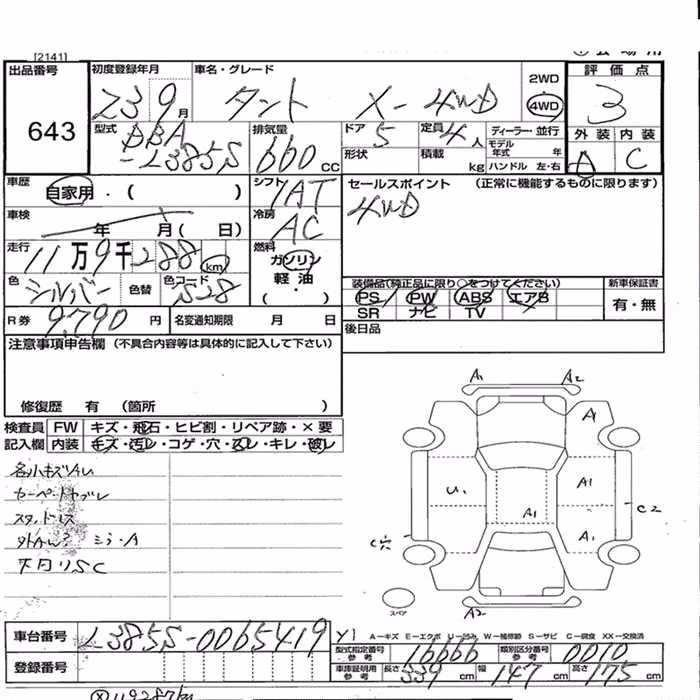 [2141]
出品番号 初度登録年月 車名・グレード 2WD 評価点
643 23 9月 タント X-4WD 4WD 3
型式 排気量 ドア 定員 ディーラー・並行 外装 内装
DBA-L385S 660cc 5 4人 モデル年式 年 A C
形状 積載 kg ハンドル 左・右
車歴 自家用・( ) シフト IAT セールスポイント (正常に機能するものに限ります)
車検 年 月( 日) 冷房 AC 4WD
走行 11万9千288km 燃料 ガソリン 軽油 ( ・ )
色 シルバー 色替 色コード S28 装備品(純正品に限り○をつけてください) 新車保証書
PS PW ABS エアB 有・無
SR ナビ TV
R券 9,790円 名変通知期限 月 日 後日品
注意事項申告欄 (不具合内容等は具体的に記入して下さい)
修復歴 有 (箇所 )
検査員 FW キズ・飛石・ヒビ割・リペア跡・×要
記入欄 内装 キズ・汚レ・コゲ・穴・スレ・キレ・破レ
各小キズAU
カーペットヤブレ
スタッドレス
ミラーA
下回りSC
A1 A2
A
U1 A1
A1 C2
A1
A2
スペア
車台番号 L385S-0065419
登録番号
Y1 A-キズ E-エクボ U-凹み W-補修跡 S-サビ C-腐食 XX-交換済
型式指定番号 参考 16666 類別区分番号 参考 0010
車庫証明用 参考 長さ 339cm 幅 147cm 高さ 175cm